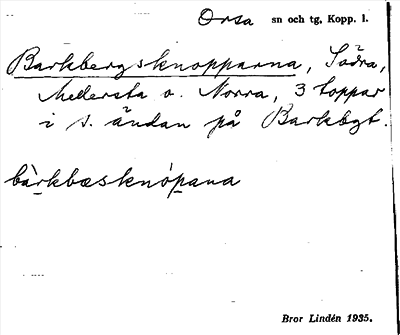 Orsa sn och tg, Kopp. l.
Barkbergsknopparna, Södra,
Mellersta o. Norra, 3 toppar
i s. ändan på Barkbgt.
bàrkbæsknópana
Bror Lindén 1935.